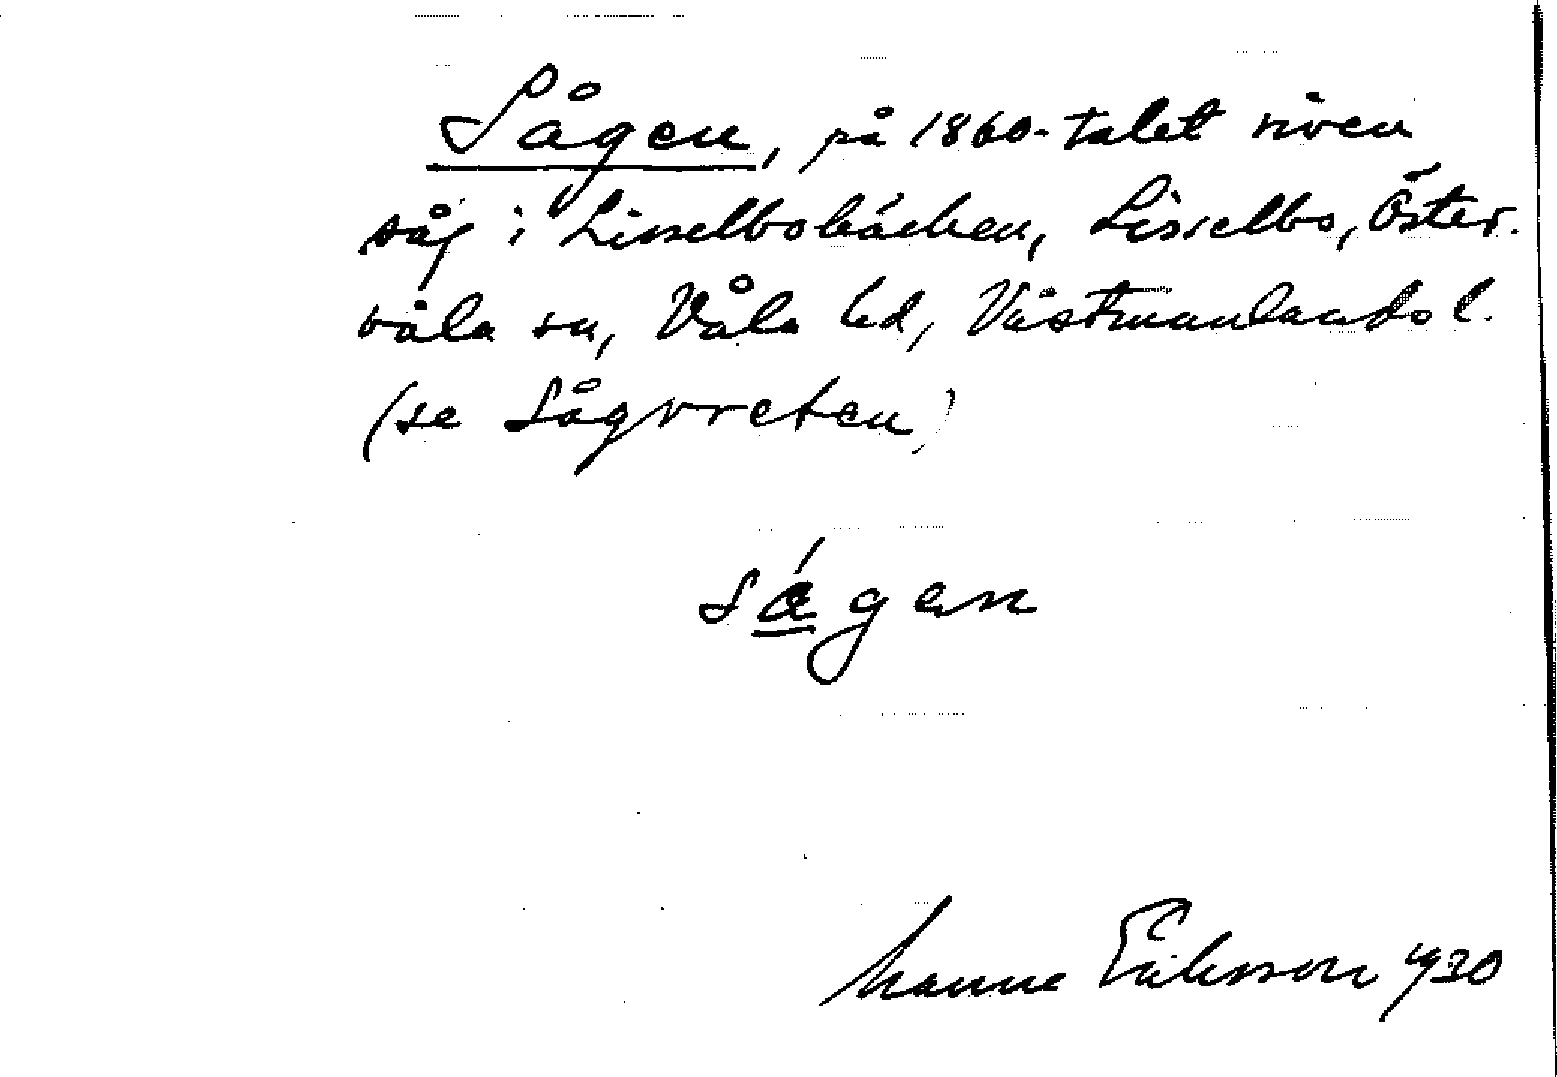 Sågen, på 1860-talet riven
såg i Lisselbobäcken, Lisselbo, Öster-
våla sn, Våla hd, Västmanlands l.
(se Sågvreten)
ságen
Manne Eriksson 1930